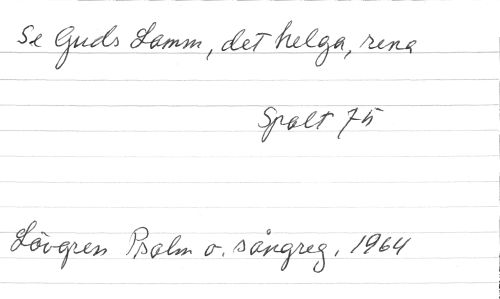 Se Guds Lamm, det helga, rena
Spalt 75
Lövgren Psalm o. sångreg. 1964